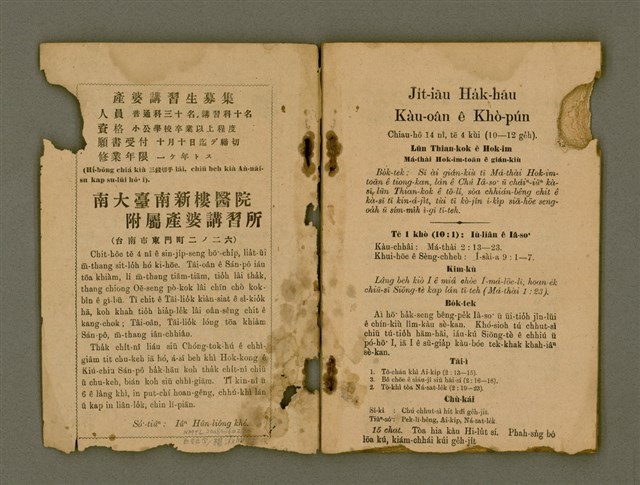 產婆講習生募集
人員 普通科三十名。講習科十名
資格 小公學校卒業以上程度
願書受付 十月十日迄ヲ締切
修業年限 一ケ年トス
(Hí-bōng chiá kià 三錢切手 lâi, chiū beh kià An-nāi-
su kap su-lūi hō· i).
南大臺南新樓醫院
附屬產婆講習所
(台南市東門町二ノ二六)
Chit-hōe tē 4 nî ê sin-ji̍p-seng bō·-chi̍p, lia̍t-ūi
m̄-thang sit-lo̍h hó ki-hōe. Tâi-oân ê Sán-pô iáu
tōa khiàm, lí m̄-thang tiām-tiām, tio̍h lâi tha̍k,
thang chiong Oē-seng pò-kok lâi chīn chò kok-
bîn ê gī-bū. Tī chit ê Tāi-lio̍k kiàn-siat ê sî-kio̍k
hā, koh khah tio̍h hia̍p-le̍k lâi oân-sêng chit ê
kang-chok; Tâi-oân, Tāi-lio̍k lóng tōa khiàm
Sán-pô, m̄-thang iân-chhiân.
Tha̍k chi̍t-nî liáu siū Chóng-tok-hú ê chhì-
giām tit chu-keh iā hó, á-sī beh khì Hok-kong ê
Kiù-chiu Sán-pô ha̍k-hāu koh tha̍k chi̍t-nî chiū
ū chu-keh, bián koh siū chhì-giām. Tī kin-nî ū
6 ê lâng khì, in put-chí hoan-géng, chhú-khì lán
ū kap in liân-lo̍k, chin lī-piān.
Só·-tiúⁿ: Iâⁿ Hān-liông khé.
Ji̍t-iāu Ha̍k-hāu
Kàu-oân ê Khò-pún
Chiau-hô 14 nî, tē 4 khì (10—12 ge̍h).
Lūn Thian-kok ê Hok-im
Má-thài Hok-im-toān ê gián-kiù
Bo̍k-tek: Sī ài gián-kiù tī Má-thài Hok-im-
toān ê tiong-kan, lán ê Chú Iâ-so· ū cháiⁿ-iūⁿ kà-
sī, lūn Thian-kok ê tō-lí, sòa chhián-bêng chit ê
kà-sī tī kin-á-ji̍t, tùi tī kò-jîn í-ki̍p siā-hōe seng-
oa̍h ū sím-mi̍h ì-gī tī-teh.
Tē 1 khò (10:1): Iù-liân ê Iâ-so·
Kàu-chhâi: Má-thài 2:13—23.
Khui-hōe ê Sèng-chheh: Í-sài-a 9:1—7.
Kim-kù
Lâng beh kiò I ê miâ chòe Í-má-lōe-lī, hoan-e̍k
chiū-sī Siōng-tè kap lán tī teh (Má-thài 1:23).
Bo̍k-tek
Ài hō· ha̍k-seng bêng-pe̍k Iâ-so· ū ūi-tio̍h jîn-lūi
ê chín-kiù lîm-kàu sè-kan. Khó-sioh tú chhut-sì
chiū tú-tio̍h hām-hāi, iáu-kú Siōng-tè ê chhiú ū
pó-hō· I, iā I ê sū-gia̍p kàu-bóe tek-khak khah-iâⁿ
sè-kan.
Tāi-ì
1. Tô-cháu khì Ai-ki̍p (2:13—15).
2. Bô chōe ê gín-á sī siū hāi-sí (2:16—18).
3. Tò-khì tòa Ná-sat-le̍k (2:19—23).
Chù-kái
Sî-kî: Chú chhut-sì hit kúi ge̍h-ji̍t.
Tiūⁿ-só·: Pek-lī-hêng, Ai-ki̍p, Ná-sat-le̍k.
15 chat. Tòa hia kàu Hi-lu̍t sí. Phah-sǹg bô
lōa kú, kiám-chhái kúi ge̍h-ji̍t